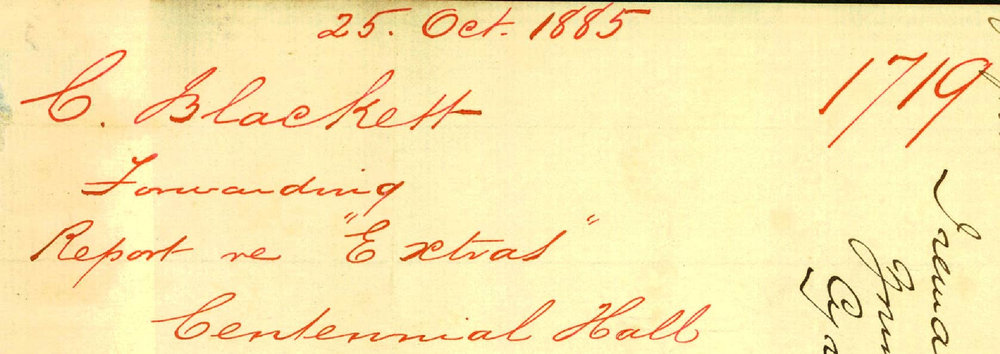 25. Oct. 1885
1719
C. Blackett
Forwarding
Report re "Extras"
Centennial Hall